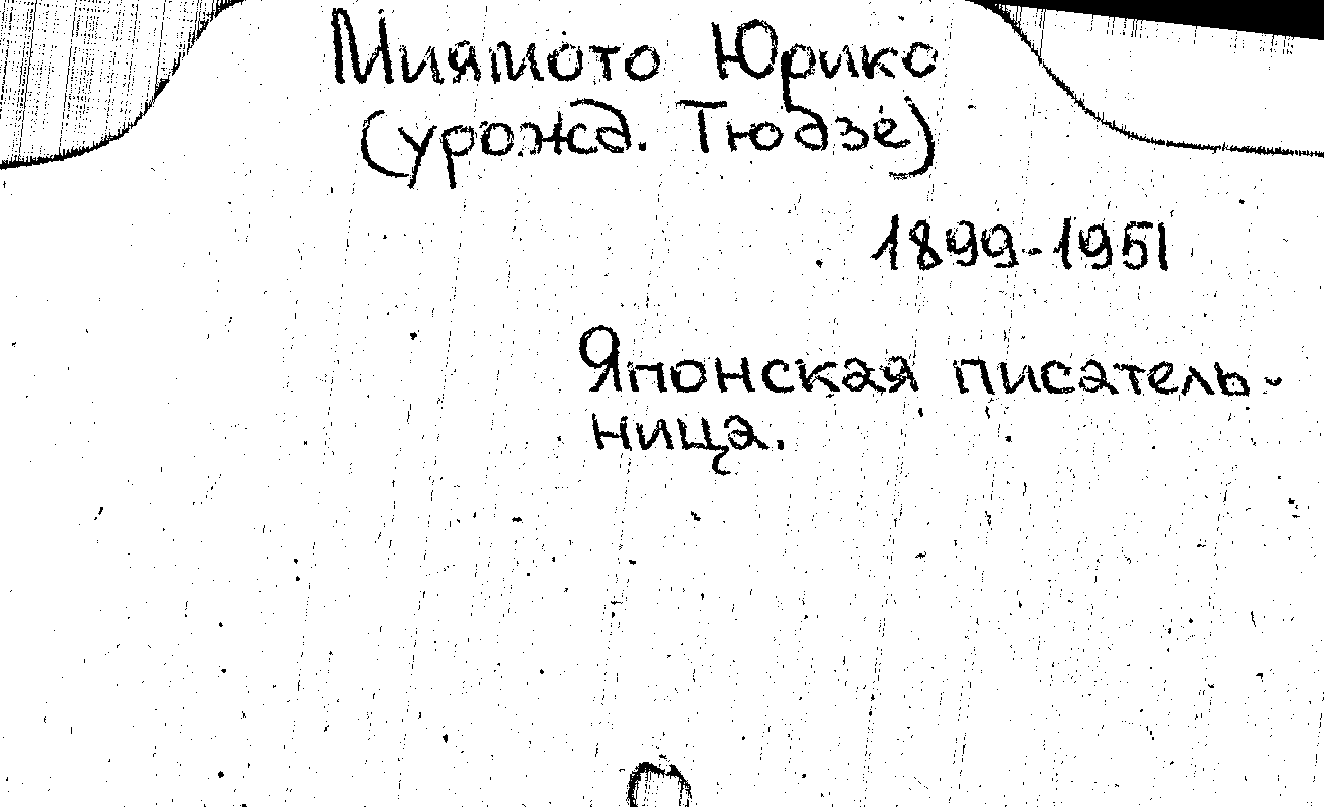 Миямото Юрико
(урожд. Тюдзё)
1899-1951
Японская писатель-
ница.